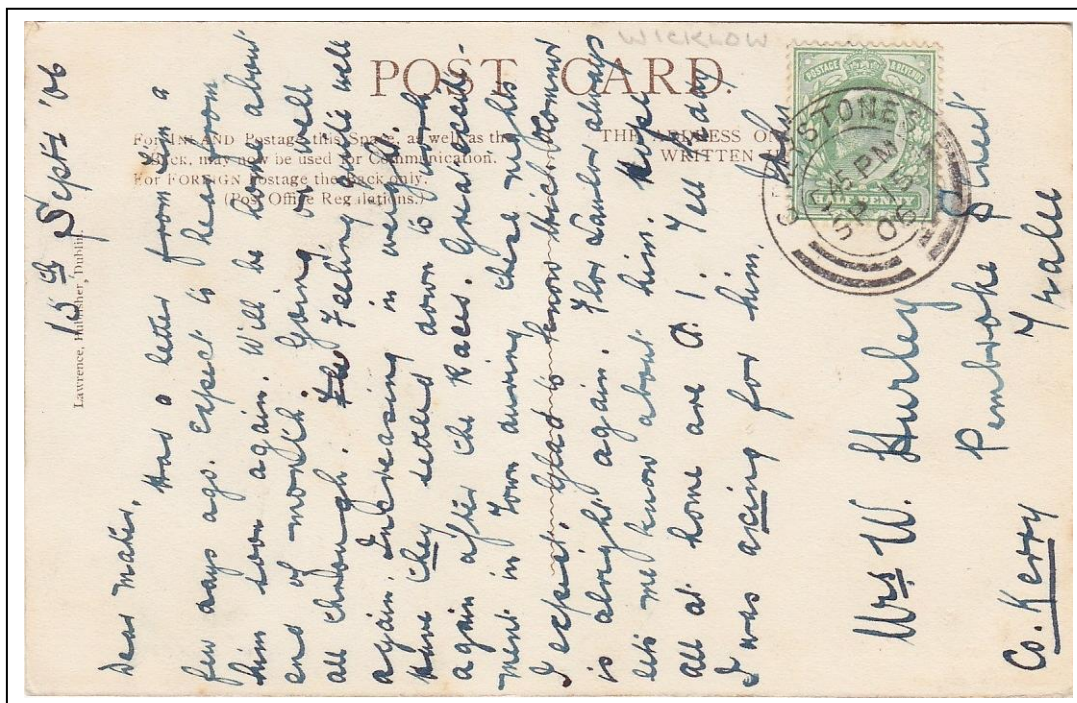 WICKLOW
POST CARD
For INLAND Postage this Space, as well as the
Back, may now be used for Communication.
For FOREIGN Postage the Back only.
(Post Office Regulations.)
THE ADDRESS ON
WRITTEN
Lawrence, Publisher, Dublin.
POSTAGE & REVENUE
HALFPENNY
GREYSTONES
45 PM
SP 15
06
15th Sept '06
Dear Mater,
Had a letter from Jim a
few days ago. Expect to hear from
him soon again. Will be home about
end of month. Going on well
all through. Feeling quite well
again. Increasing in weight.
Have they settled down to work
again after the Races. Great excite-
ment in Town during these nights
I expect. Glad to know that Connor
is alright again. Flor Lawlor always
lets me know about him. Hope
all at home are A.1. Tell Paddy
I was asking for him.
Mrs W. Hurley
Pembroke Street
Tralee
Co. Kerry